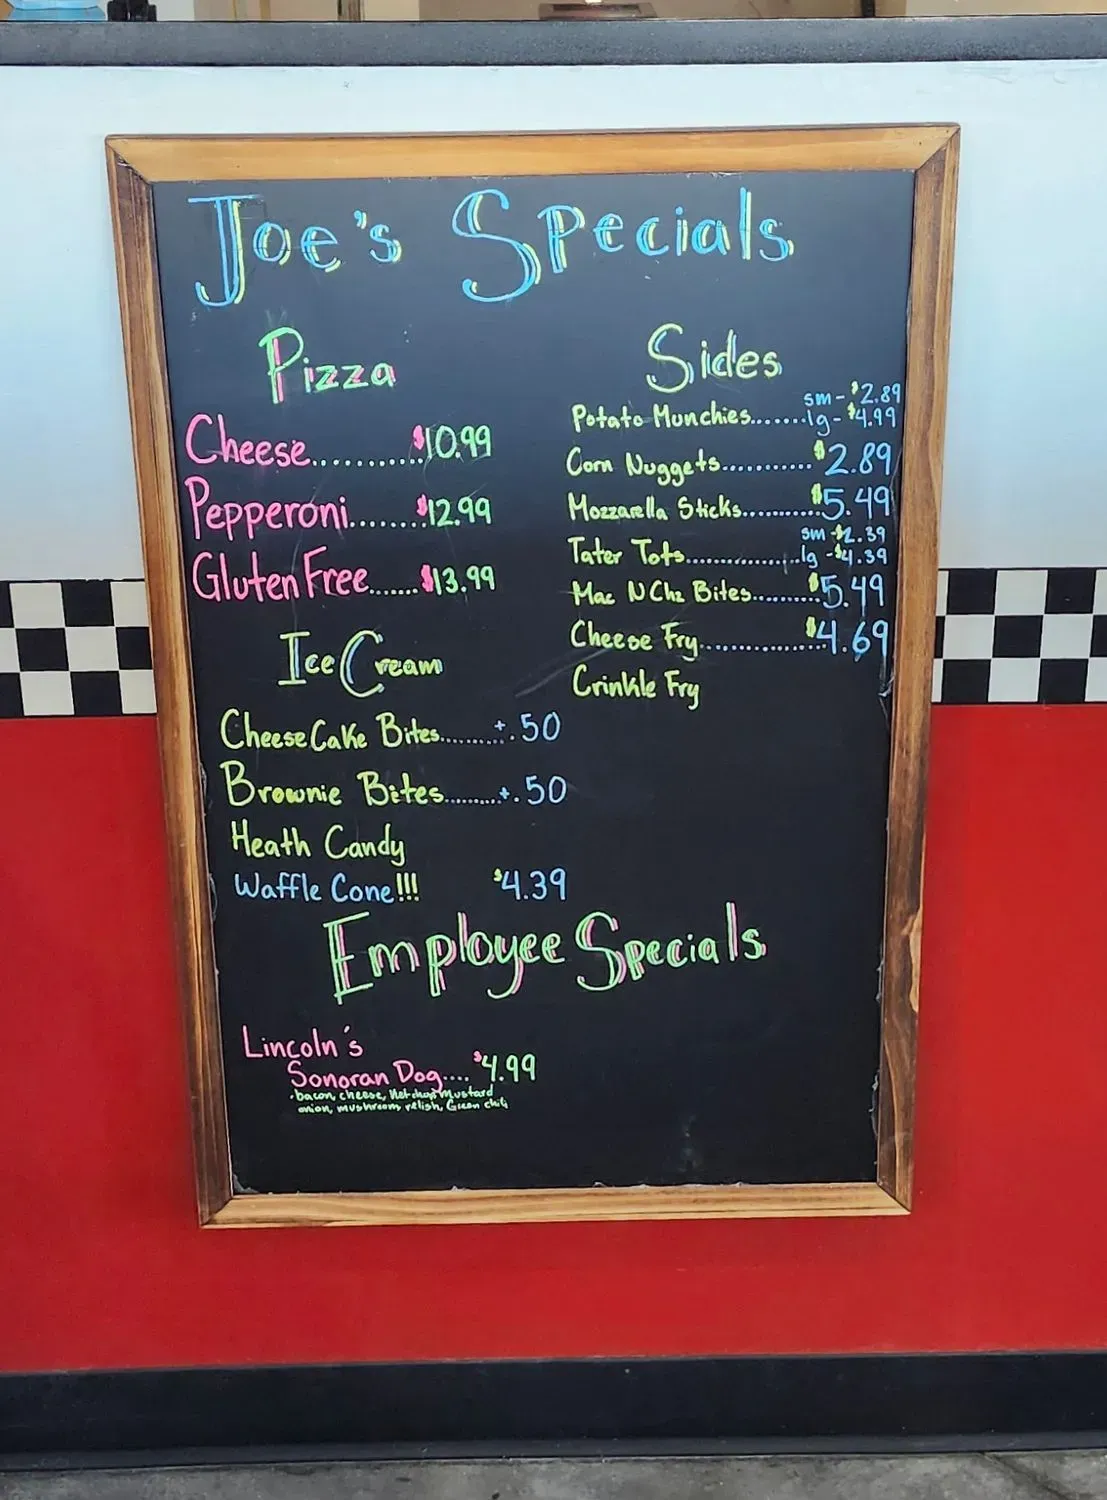 Joe's Specials
Pizza
Cheese............$10.99
Pepperoni........$12.99
Gluten Free.......$13.99
Ice Cream
CheeseCake Bites.........+.50
Brownie Bites.........+.50
Heath Candy
Waffle Cone!!! $4.39
Sides
sm-$2.89
Potato Munchies.......lg-$4.99
Corn Nuggets............$2.89
Mozzarella Sticks..........$5.49
sm-$2.39
Tater Tots................lg-$4.39
Mac N Chz Bites..........$5.49
Cheese Fry................$4.69
Crinkle Fry
Employee Specials
Lincoln's
Sonoran Dog....$4.99
·bacon, cheese, mustard
onion, mushrooms, relish, Green chili